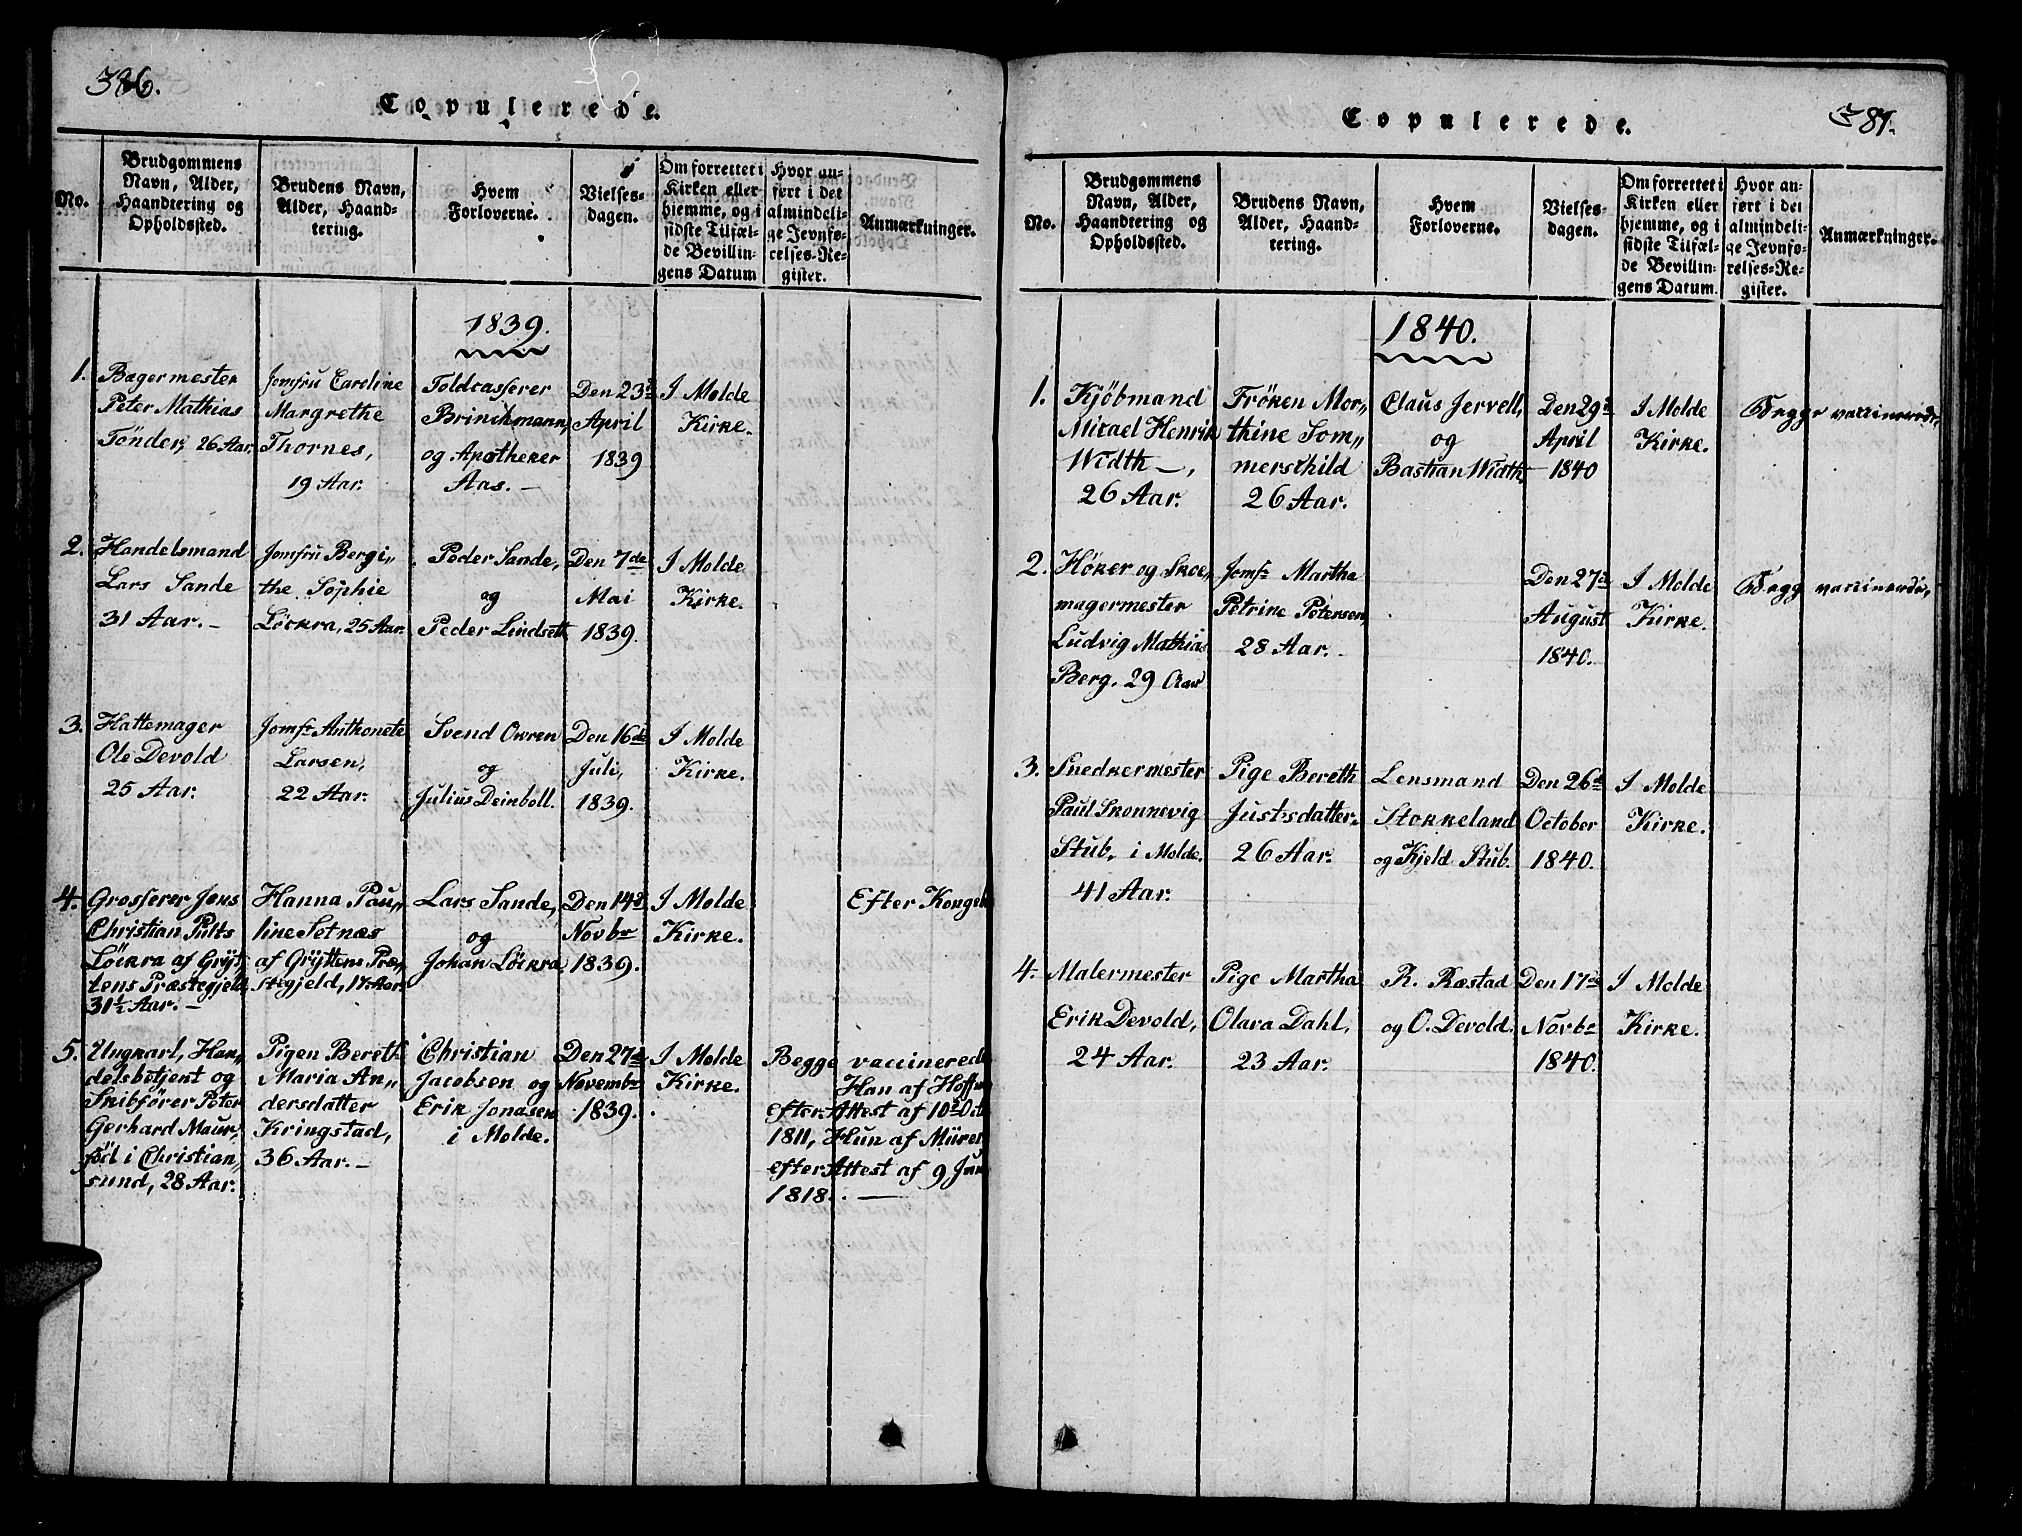 386.
Copulerede.
No.
Brudgommens
Navn, Alder,
Haandtering og
Opholdssted.
Brudens Navn,
Alder, Haand-
tering.
Hvem
Forloverne.
Vielses-
dagen.
Om forrettet i
Kirken eller
hjemme, og i
sidste Tilfæl-
de Bevillin-
gens Datum
Hvor an-
ført i det
almindeli-
ge Jevnfø-
relses-Re-
gister.
Anmærkninger.
1839.
1.
Bagermester
Peter Mathias
Tönder, 26 Aar.
Jomfru Caroline
Margrethe
Thornes,
19 Aar.
Toldcasserer
Brinchmann,
og Apotheker
Aas. —
Den 23de
April
1839
I Molde
Kirke.
2.
Handelsmand
Lars Sande
31 Aar. —
Jomfru Bergi„
the Sophie
Löckra, 25 Aar.
Peder Sande,
og
Peder Lindseth
Den 7de
Mai
1839.
I Molde
Kirke.
3.
Hattemager
Ole Devold
25 Aar.
Jomfr Anthonete
Larsen,
22 Aar.
Svend Owren
og
Julius Deinboll.
Den 16de
Juli,
1839.
I Molde
Kirke.
4.
Grosserer Jens
Christian Pults
Löckra af Gryt„
tens Præstegjeld,
31½ Aar. —
Hanna Pau„
line Setnæs
af Gryttens Præ„
stegjeld, 17 Aar.
Lars Sande,
og
Johan Löckra
Den 14de
Novbr
1839.
I Molde
Kirke.
Efter Kongel
5.
Ungkarl, Han„
delsbetjent og
Skibförer Peter
Gerhard Maur„
föd i Christian„
sund, 28 Aar.
Pigen Bereth
Maria An„
dersdatter
Kringstad,
36 Aar. —
Christian
Jacobsen og
Erik Jonasen
i Molde.
Den 27de
Novembr
1839.
I Molde
Kirke.
Begge vaccinerede
Han af Hoff
efter Attest af 10de Oct
1811, Hun af Müre
efter Attest af 9 Jun
1818. —
381.
Copulerede.
No.
Brudgommens
Navn, Alder,
Haandtering og
Opholdssted.
Brudens Navn,
Alder, Haand-
tering.
Hvem
Forloverne.
Vielses-
dagen.
Om forrettet i
Kirken eller
hjemme, og i
sidste Tilfæl-
de Bevillin-
gens Datum.
Hvor an-
ført i det
almindeli-
ge Jevnfø-
relses-Re-
gister.
Anmærkninger.
1840.
1.
Kjöbmand
Micael Henrik
Width —,
26 Aar.
Fröken Mor„
thine Som„
merschild
26 Aar.
Claus Jervell,
og
Bastian Width
Den 29de
April
1840
I Molde
Kirke.
Begge vaccinerede,
2.
Höker og Skoe„
magermester
Ludvig Mathias
Berg. 29 Aar
Jomfr Martha
Petrine Petersen,
28 Aar. -
Den 27de
August
1840.
I Molde
Kirke.
Begg vaccinerede,
3.
Snedkermester
Paul Skonnevig
Stub, i Molde.
41 Aar.
Pige Bereth
Justsdatter„
26 Aar.
Lensmand
Stokkeland
og Kjeld Stub.
Den 26de
October
1840.
I Molde
Kirke.
4.
Malermester
Erik Devold,
24 Aar.
Pige Martha
Olava Dahl,
23 Aar.
R. Ræstad
og O. Devold.
Den 17de
Novbr
1840.
I Molde
Kirke.